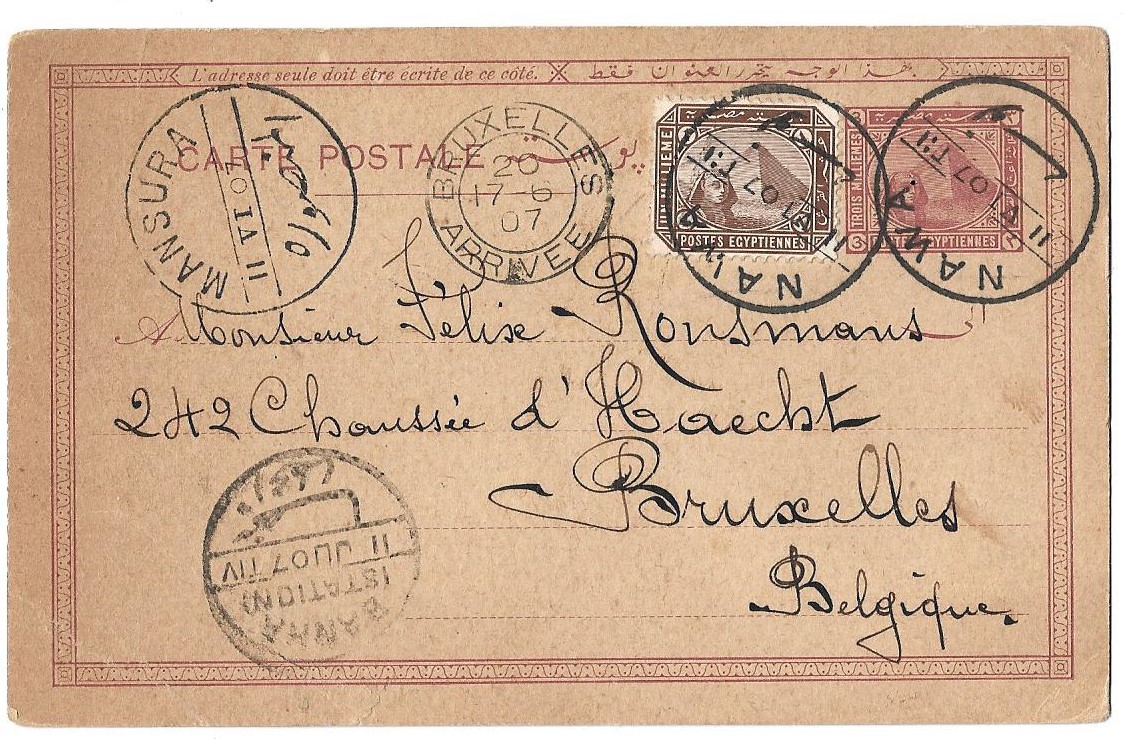 L'adresse seule doit être écrite de ce côté. هذا الوجه محرر العنوان فقط
CARTE POSTALE
MANSURA
11
BRUXELLES
20
17-6
07
ARRIVEE
UN MILLIEME
POSTES EGYPTIENNES
NAWA
11
07 T:II
TROIS MILLIEMES
POSTES EGYPTIENNES
NAWA.
11
07 T:II
A Monsieur Félix Ronsmans
242 Chaussée d'Haecht
Bruxelles
Belgique.
11 JU 07 TIV
(STATION)
BANHA